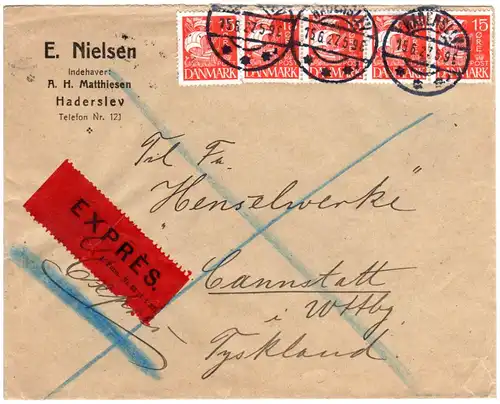 E. Nielsen
Indehaver:
A. H. Matthiesen
Haderslev
Telefon Nr. 121
DANMARK DANMARK DANMARK DANMARK DANMARK
15
ØRE
POST
HADERSLEV
15.6.27.5-9E
EXPRÈS.
Til Fa
"Henselwerke"
Cannstatt
i Wttbg.
Tyskland.